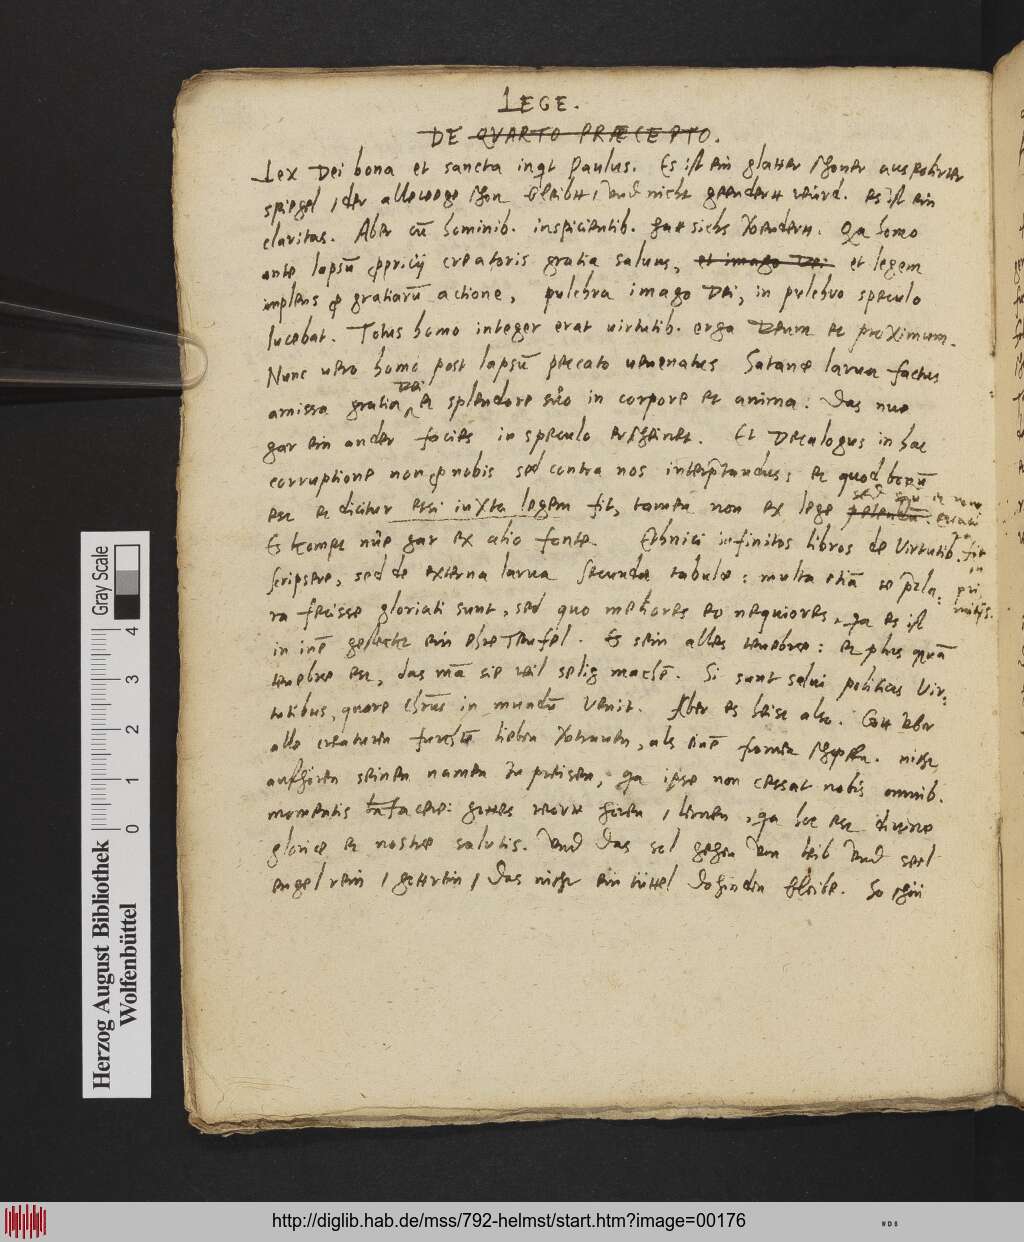 LEGE.
DE QVARTO PRÆCEPTO.
Lex Dei bona et sancta inqt Paulus. Es ist ein glatter schoner auspolirter
spiegel / der allewege schon bleibtt / vnd nicht geendertt würd. es ist ein
claritas. Aber cū hominib. inspicientib. hat sichs verendertt. Qa homo
ante lapsū creatoris gratia saluus, et imago Dei et legem
implens gratiarū actione, pulchra imago Dei, in pulchro speculo
lucebat. Totus homo integer erat uirtutib. erga Deum et proximum.
Nunc uero homo post lapsū peccato uenenatus Satanæ larua factus
Dei
amissa gratia et splendore suo in corpore et anima. Das nue
gar ein ander facies in speculo erscheinet. Et Decalogus in hac
corruptione non nobis sed contra nos interptandus, et quod bonū
est et dicitur etsi iuxta legem fit, tamen non ex lege
Es kompt nue gar ex alio fonte. Ethnici infinitos libros de Virtutib.
scripsere, sed de externa larua secundæ tabulæ: multa etiā se præcla-
ra fecisse gloriati sunt, sed quo meliores eo nequiores, qa es ist
in ein ehre Teufel. Es sein alles tenebræ: et plus quā
tenebræ est, das mā sie wil selig machē. Si sunt salui politicis Vir-
tutibus, quare Chrūs in mundū venit. Aber es heist also. Gott vber
alle creaturen furchtē lieben vertrauen, als schepffer. nicht
auffhören seinen namen zu preisen, qa ipse non cessat nobis omnib.
momentis benefacere: gottes wortt hören / lernen, qa hoc est diuinæ
gloriæ et nostræ salutis. Vnd das sol gehen von leib vnd seel
engel rein / gottrein / das nicht ein tüttel dohinden bleibe. So schon
Herzog August Bibliothek
Wolfenbüttel
0 1 2 3 4
Gray Scale
http://diglib.hab.de/mss/792-helmst/start.htm?image=00176